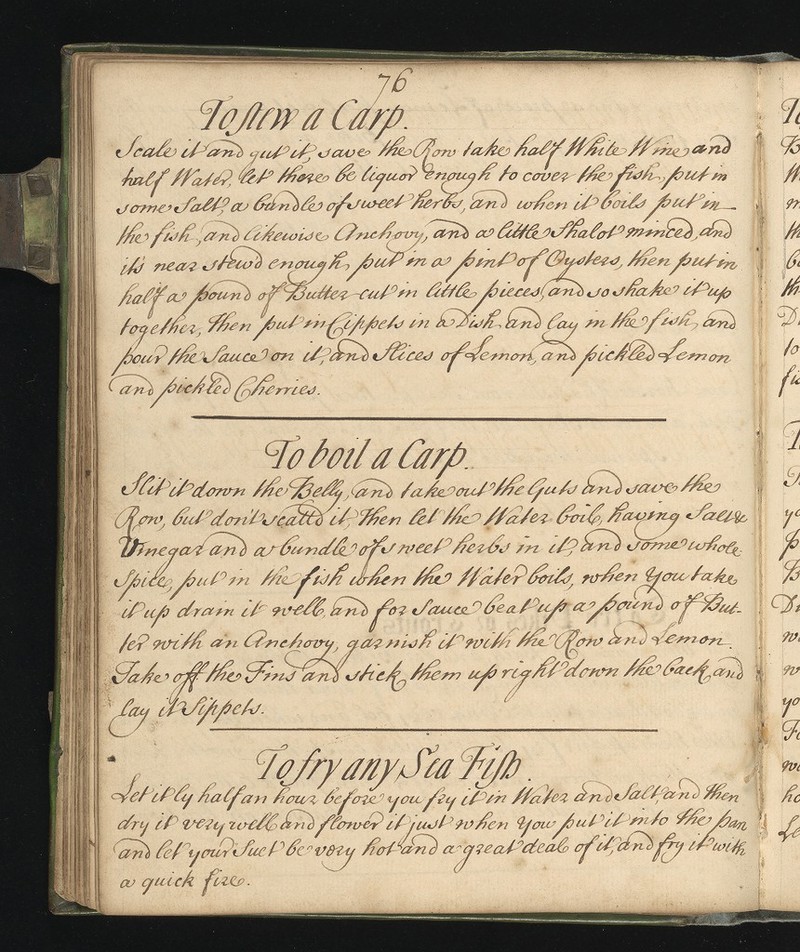 76
To stew a Carp.
Scale it and gut it, save the Row take half White Wine and
half Water, let there be liquor enough to cover the fish, put in
some Salt, a bundle of sweet herbs, and when it boils put in
the fish, and likewise Anchovy, and a little Shalot minced, and
it's near stew'd enough, put in a pint of Oysters, then put in
half a pound of Butter cut in little pieces, and so shake it up
together, Then put in Sippets in a Dish and lay in the fish, and
pour the Sauce on it, and Slices of Lemon, and pickled Lemon
and pickled Cherries.
To boil a Carp.
Slit it down the Belly, and take out the Guts and save the
Row, but don't it, Then let the Water boil, having Salt &
Vinegar and a bundle of sweet herbs in it, and some whole
Spice, put in the fish when the Water boils, when you take
it up drain it well, and for Sauce beat up a pound of But-
ter with an Anchovy, garnish it with the Row and Lemon.
Take off the Fins and stick them upright down the back, and
lay it Sippets.
To fry any Sea Fish.
Let it ly half an hour before you fry it in Water and Salt, and then
dry it very well and flower it just when you put it into the pan
and let your Suet be very hot and a great deal of it, and fry it with
a quick fire.